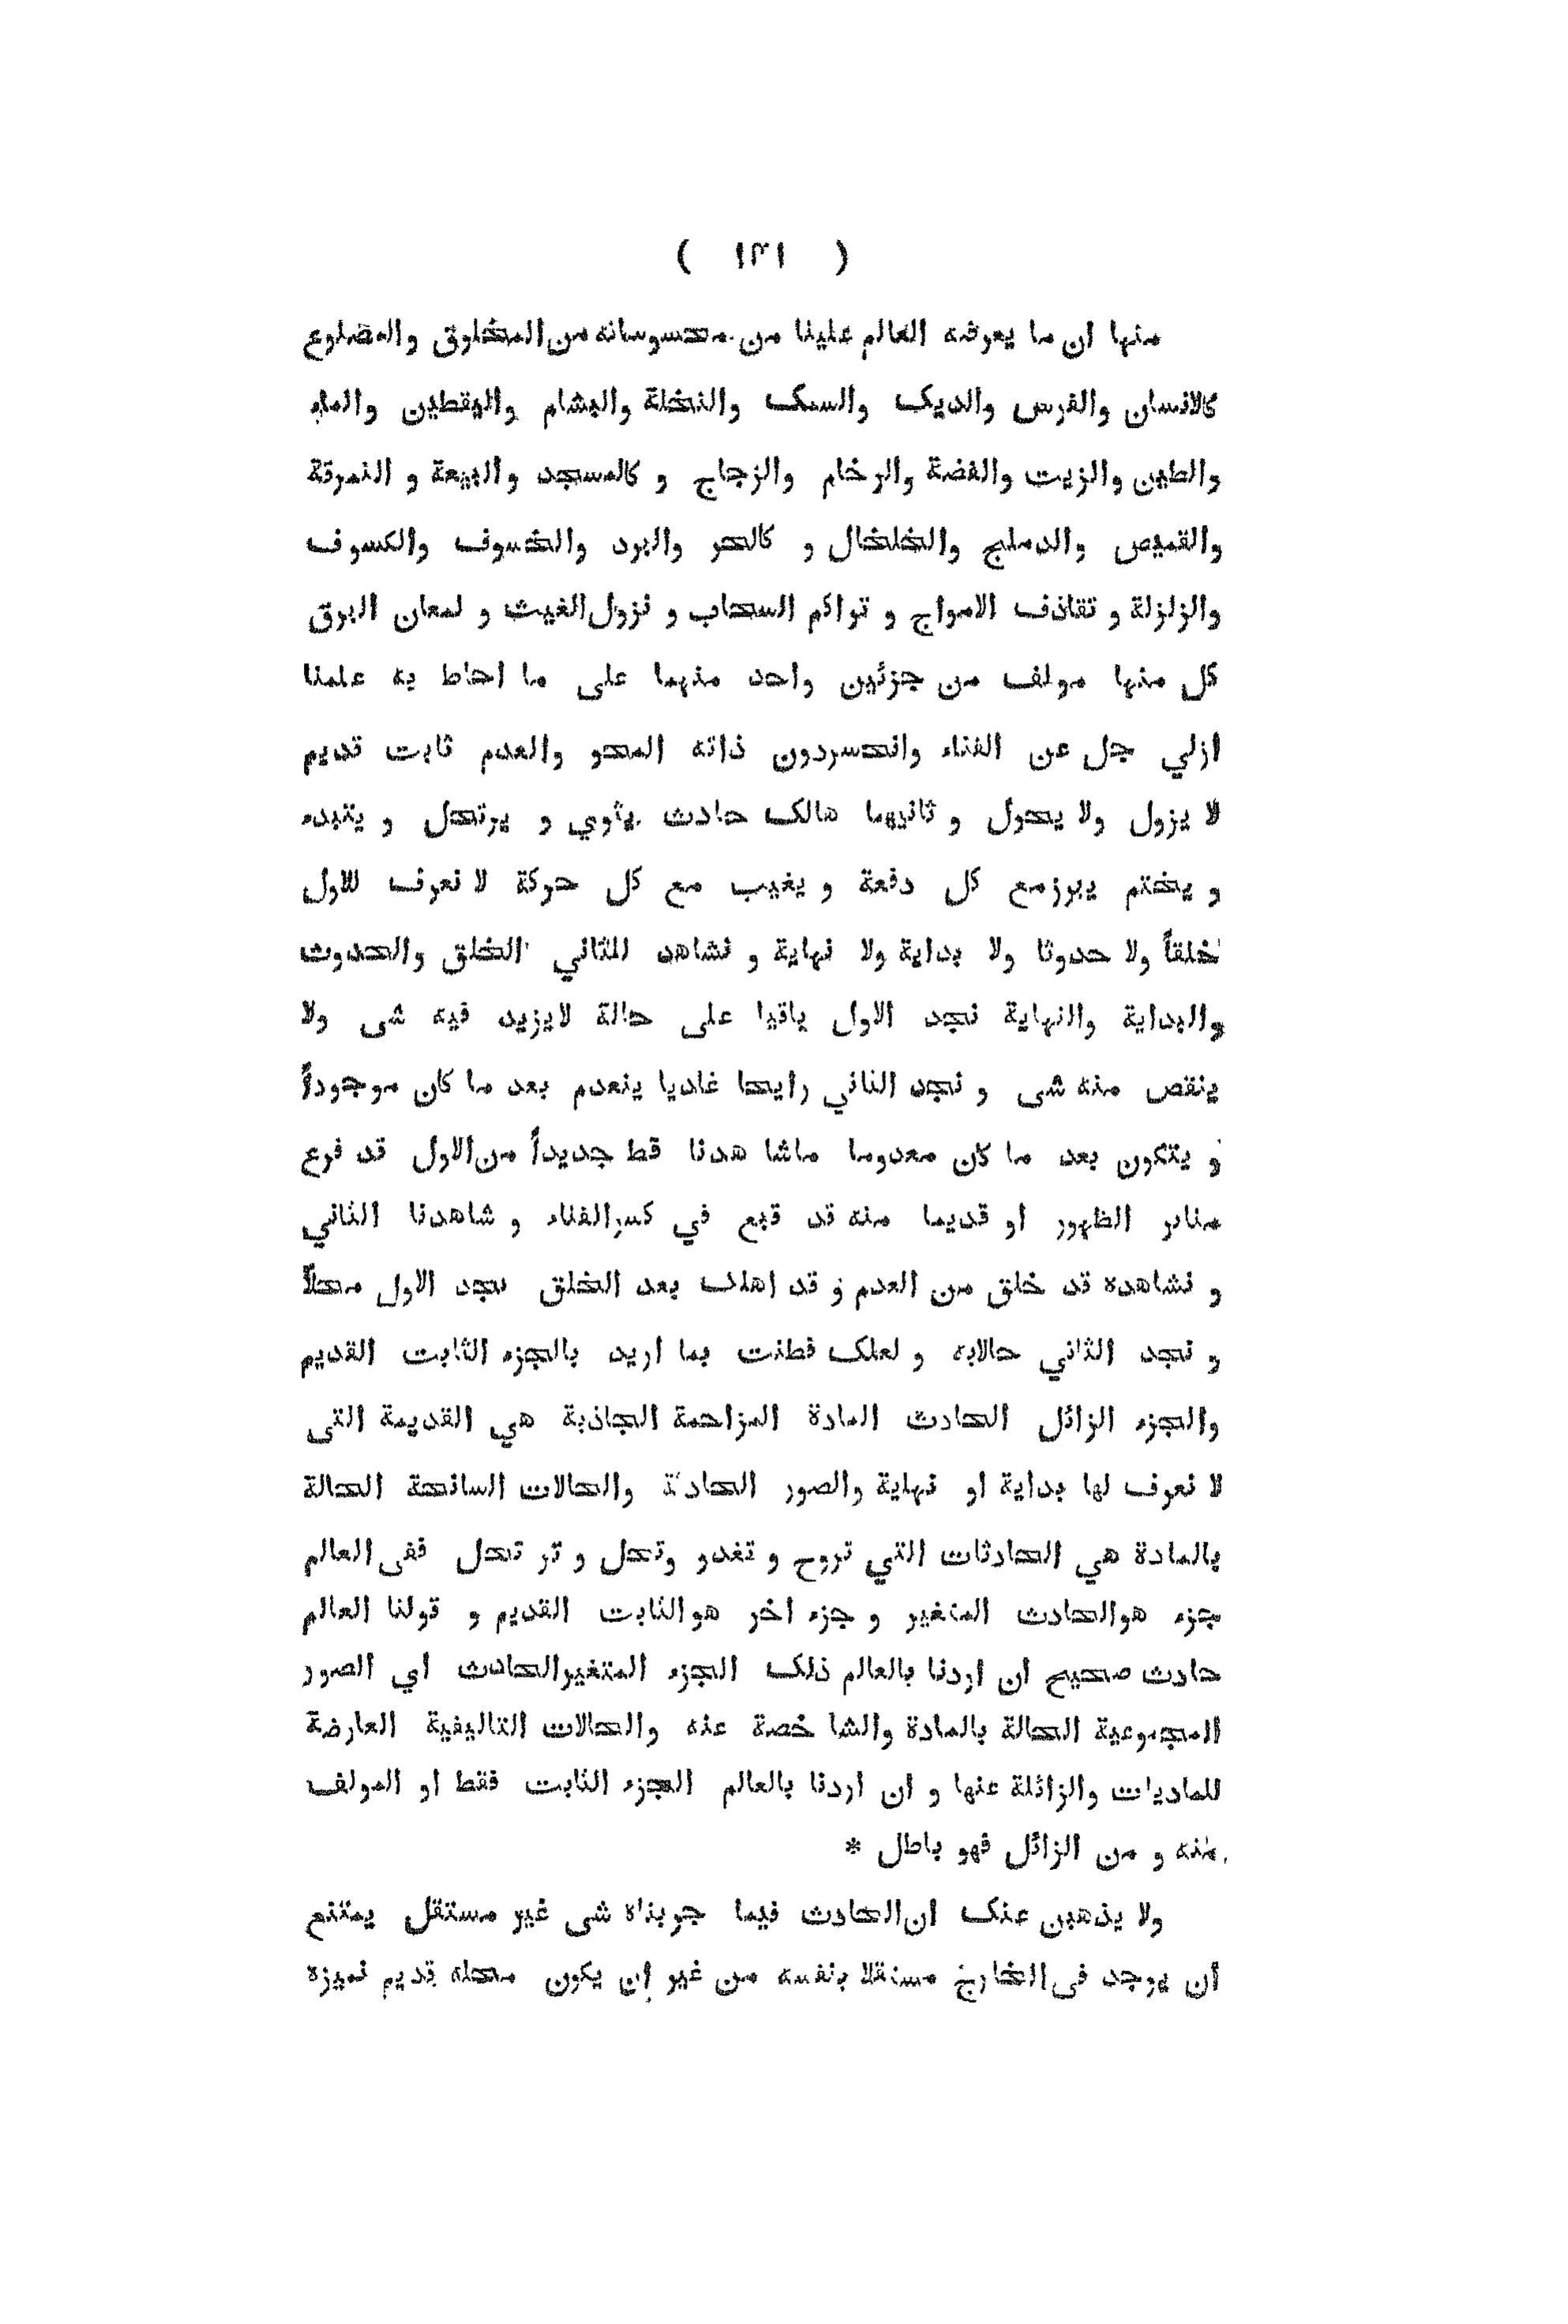 ( ١٣١ )
منها ان ما يعرضه العالم علينا من محسوساته من المخلوق والمصلوع
كالانسان والفرس والديک والسمک والنخلة والبشام واليقطين والماء
والطين والزيت والفضة والرخام والزجاج و كالمسجد والبيعة و النمرقة
والقميص والدملج والخلخال و كالحر والبرد والخسوف والكسوف
والزلزلة و تقاذف الامواج و تراكم السحاب و نزول الغيث و لمعان البرق
كل منها مولف من جزئين واحد منهما على ما احاط به علمنا
ازلي جل عن الفناء وانحسردون ذاته المحو والعدم ثابت قديم
لا يزول ولا يحول و ثانيهما هالک حادث يثوي و يرتحل و يتبدء
و يختم يبرز مع كل دفعة و يغيب مع كل حركة لا نعرف للاول
خلقاً ولا حدوثا ولا بداية ولا نهاية و نشاهد للثاني الخلق والحدوث
والبداية والنهاية نجد الاول باقيا على حالة لايزيد فيه شى ولا
ينقص منه شى و نجد الثاني رايحا غاديا ينعدم بعد ما كان موجوداً
و يتكون بعد ما كان معدوما ماشا هدنا قط جديداً من الاول قد فرع
منابر الظهور او قديما منه قد قبع في كسرالفناء و شاهدنا الثاني
و نشاهده قد خلق من العدم و قد اهلك بعد الخلق نجد الاول محلاً
و نجد الثاني حالابه و لعلک فطنت بما اريد بالجزء الثابت القديم
والجزء الزائل الحادث المادة المزاحمة الجاذبة هي القديمة التى
لا نعرف لها بداية او نهاية والصور الحادثة والحالات السانحة الحالة
بالمادة هي الحادثات التي تروح و تغدو وتحل و تر تحل ففى العالم
جزء هوالحادث المتغير و جزء اخر هوالثابت القديم و قولنا العالم
حادث صحيح ان اردنا بالعالم ذلک الجزء المتغيرالحادث اي الصور
المجموعية الحالة بالمادة والشا خصة عنه والحالات التاليفية العارضة
للماديات والزائلة عنها و ان اردنا بالعالم الجزء الثابت فقط او المولف
منه و من الزائل فهو باطل *
ولا يذهبن عنک ان الحادث فيما جربناه شى غير مستقل يمتنع
أن يوجد فى الخارج مستقلا بنفسه من غير إن يكون محله قديم نميزه